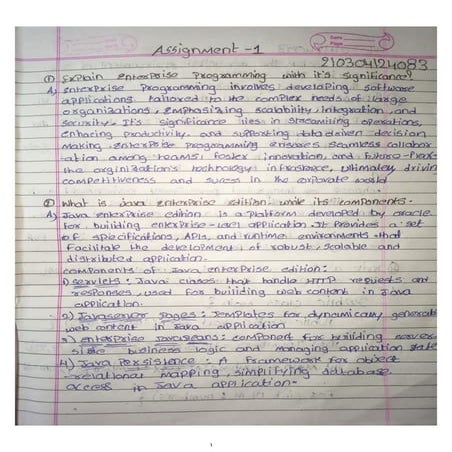 Assignment -1
210304124083
① Explain enterprise programming with it's significance?
A) Enterprise programming involves developing software
applications tailored to the complex needs of large
organisations, emphasizing scalability, integration, and
security. It's significance lies in streamlining operations,
enhacing productivity, and supporting data driven decision
making. enterprise programming ensures seamless collabor
-ation among teams, foster innovation, and future-proof
the orginization's technology ultimately drivin
competitiveness and sucess in the corporate world
② What is java enterprise edition write its components.
A) Java enterprise edition is a platform developed by oracle
for building enterprise-level application. It provides set
of specifications, APIs, and runtime environments that
facilitate the development of robust, scalable and
distributed application.
components of Java enterprise edition:
1) servlets: Java classes that handle HTTP requests and
responses, used for building web content in Java
application.
2) Javaserver pages: templates for dynamically generate
web content in Java application
3) enterprise Javabeans: component for building server
side business logic and managing application state
4) Java persistence: A framework for object
-relational mapping, simplifying database
access in Java application-